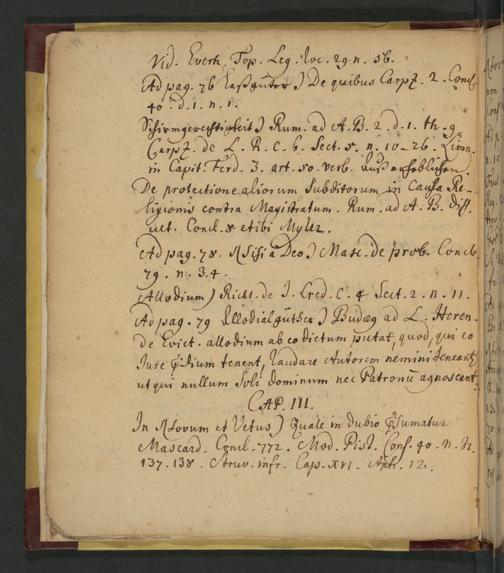 Vid. Everh. Top. Leg. loc. 29. n. 56.
Ad pag. 76 Laßgüter) De quibus Carpz. 2. Concl.
40. d. 1. n. 1.
Schirmgerechtigkeit) Rum. ad A. B. 2. d. 1. th. 9.
Carpz. de L. R. C. 6. Sect. 5. n. 10-26. Limn.
in Capit. Ferd. 3. art. 50. verb.
De protectione aliorum Subditorum in Causa Re-
ligionis contra Magistratum. Rum. ad A. B. diss.
Concl. 8 et ibi Myler.
Ad pag. 78. Nisi a Deo) Masc. de prob. Concl.
79. n. 3. 4.
Allodium) Richt. de J. Cred. C. 4 Sect. 2. n. 11.
Ad pag. 79 Allodialgüther) Budæg ad L. Heren.
de Evict. allodium ab eo dictum putat, quod, qui eo
Jure prædium tenent, laudare Autorem nemini teneant
ut qui nullum Soli dominum nec Patronū agnoscant.
CAP. III.
In Novum et Vetus) Quale in dubio præsumatur
Mascard. Concl. 772. Mod. Pist. Cons. 40. n.
137. 138. Struv. infr. Cap. XVI. Aph. 12.